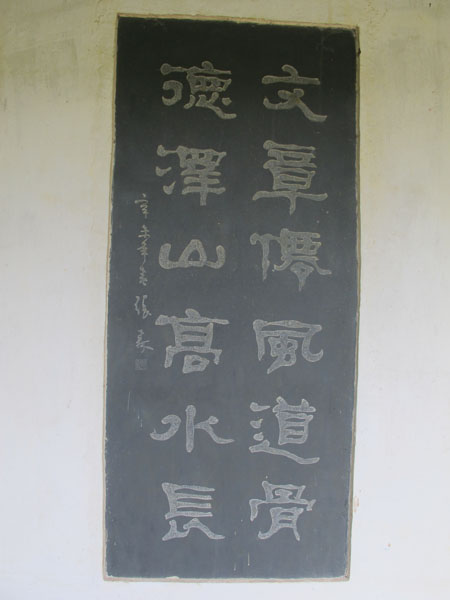 文章僊風道骨
德澤山高水長
辛未年冬張